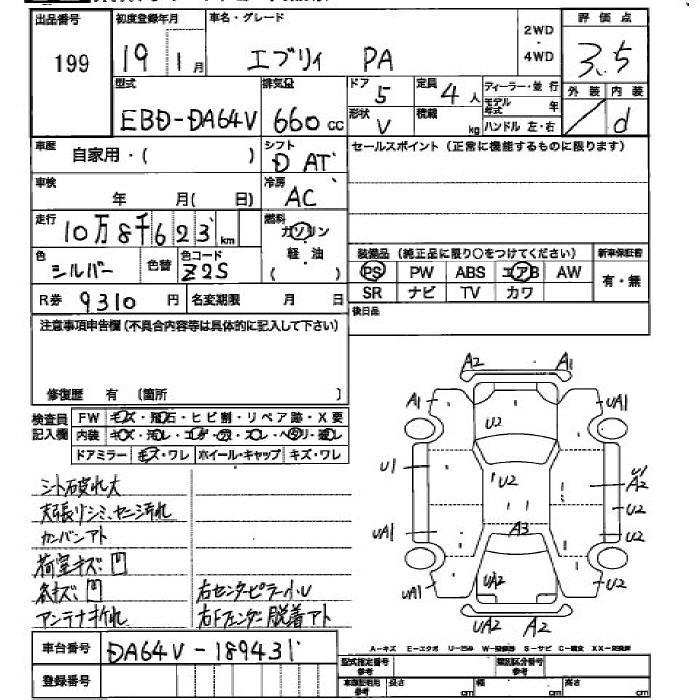 出品番号 199
初度登録年月 19 1月
車名・グレード エブリィ PA
2WD・4WD
評価点 3.5
型式 EBD-DA64V
排気量 660cc
ドア 5
定員 4人
形状 V
積載 kg
ディーラー・並行
モデル年式 年
ハンドル 左・右
外装 /
内装 d
車歴 自家用・( )
シフト D AT
セールスポイント (正常に機能するものに限ります)
車検 年 月( 日)
冷房 AC
走行 10万8千623km
燃料 ガソリン
軽・油
( )
色 シルバー
色替
色コード Z2S
装備品 (純正品に限り〇をつけてください)
新車保証書 有・無
PS PW ABS エアB AW
SR ナビ TV カワ
R券 9310円
名変期限 月 日
後日品
注意事項申告欄(不具合内容等は具体的に記入して下さい)
修復歴 有 (箇所 )
検査員記入欄
FW キズ・飛石・ヒビ割・リペア跡・X要
内装 キズ・汚レ・コゲ・穴・スレ・ヘタリ・
ドアミラー キズ・ワレ ホイール・キャップ キズ・ワレ
シート破れ大
天張リシミ、
カンバンアト
荷室キズ
アンテナ折れ
右センターピラー小U
右Fフェンダー脱着アト
A2 A1
A1 U2 UA1
U1 U2 U2 U1 A2
U2
UA1 A3 U2
UA1 UA2 U2
UA2 A2
A-キズ E-エクボ U-凹ミ
車台番号 DA64V-189431
登録番号
型式指定番号 参考
類別区分番号 参考
参考 長さ cm 幅 cm 高さ cm